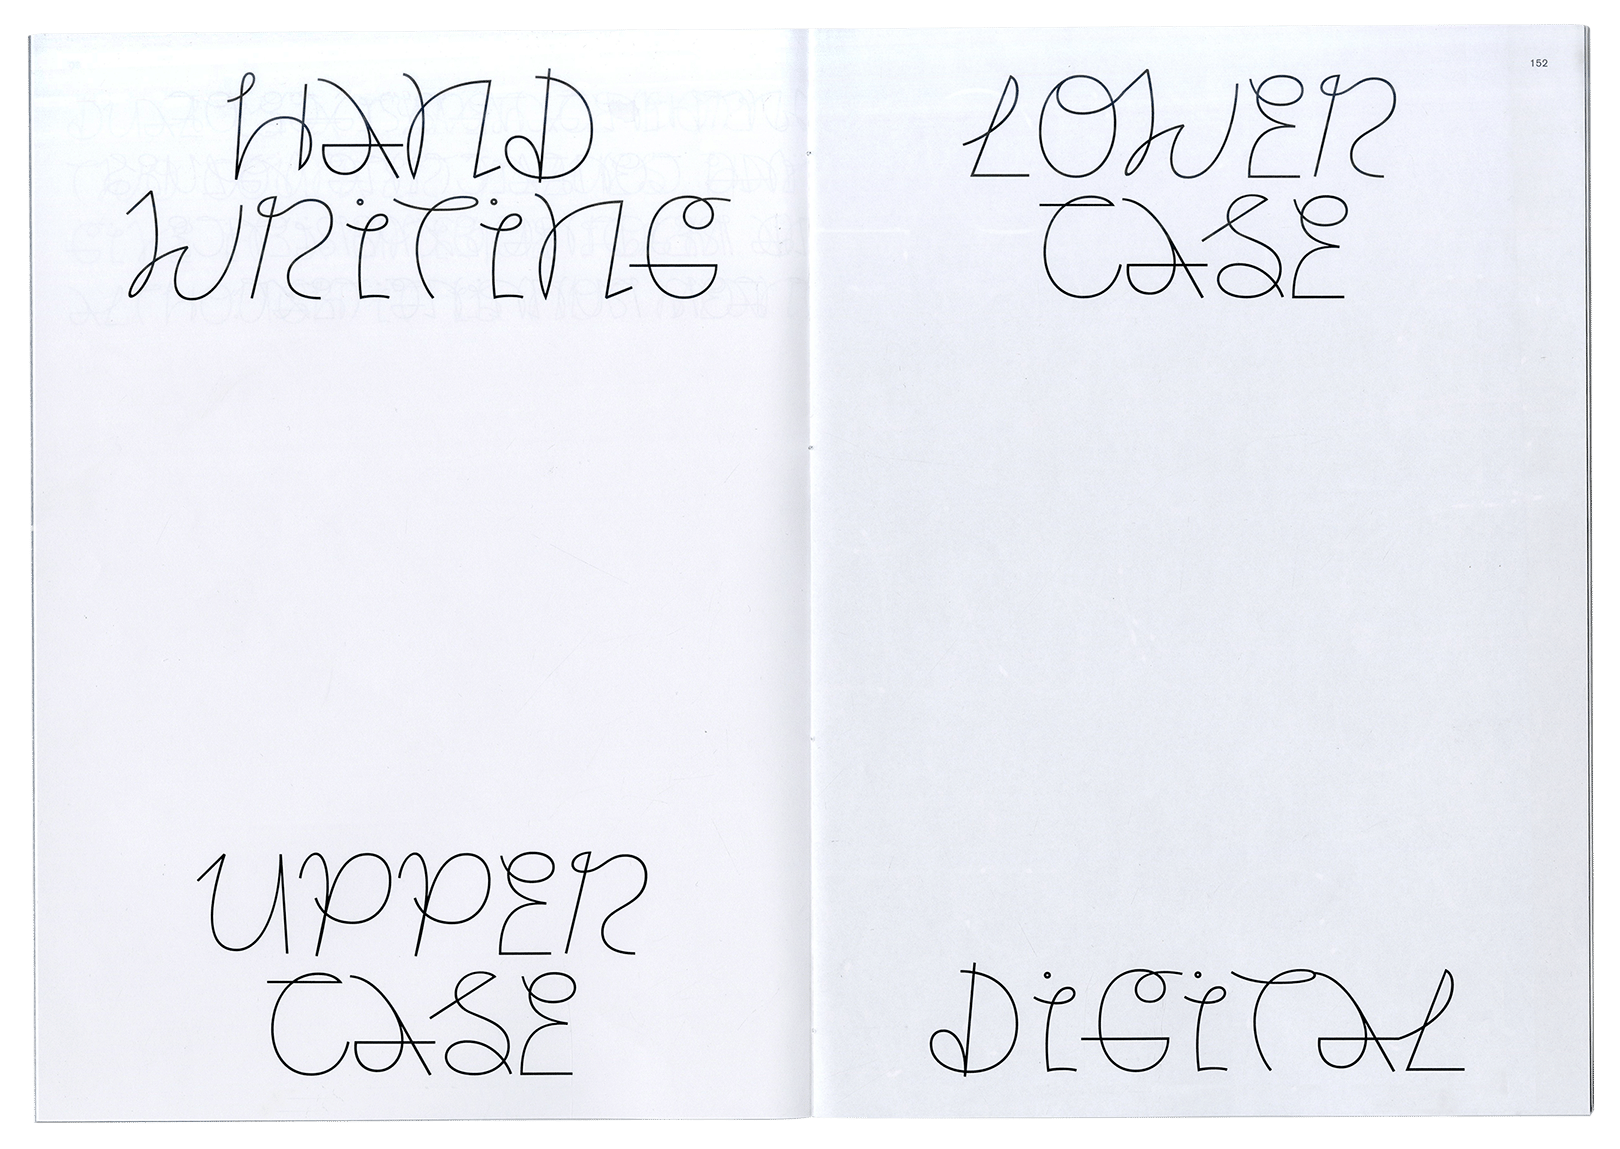 HAND
WRiTiNG
UPPER
CASE
152
LOWER
CASE
DiGiTAL